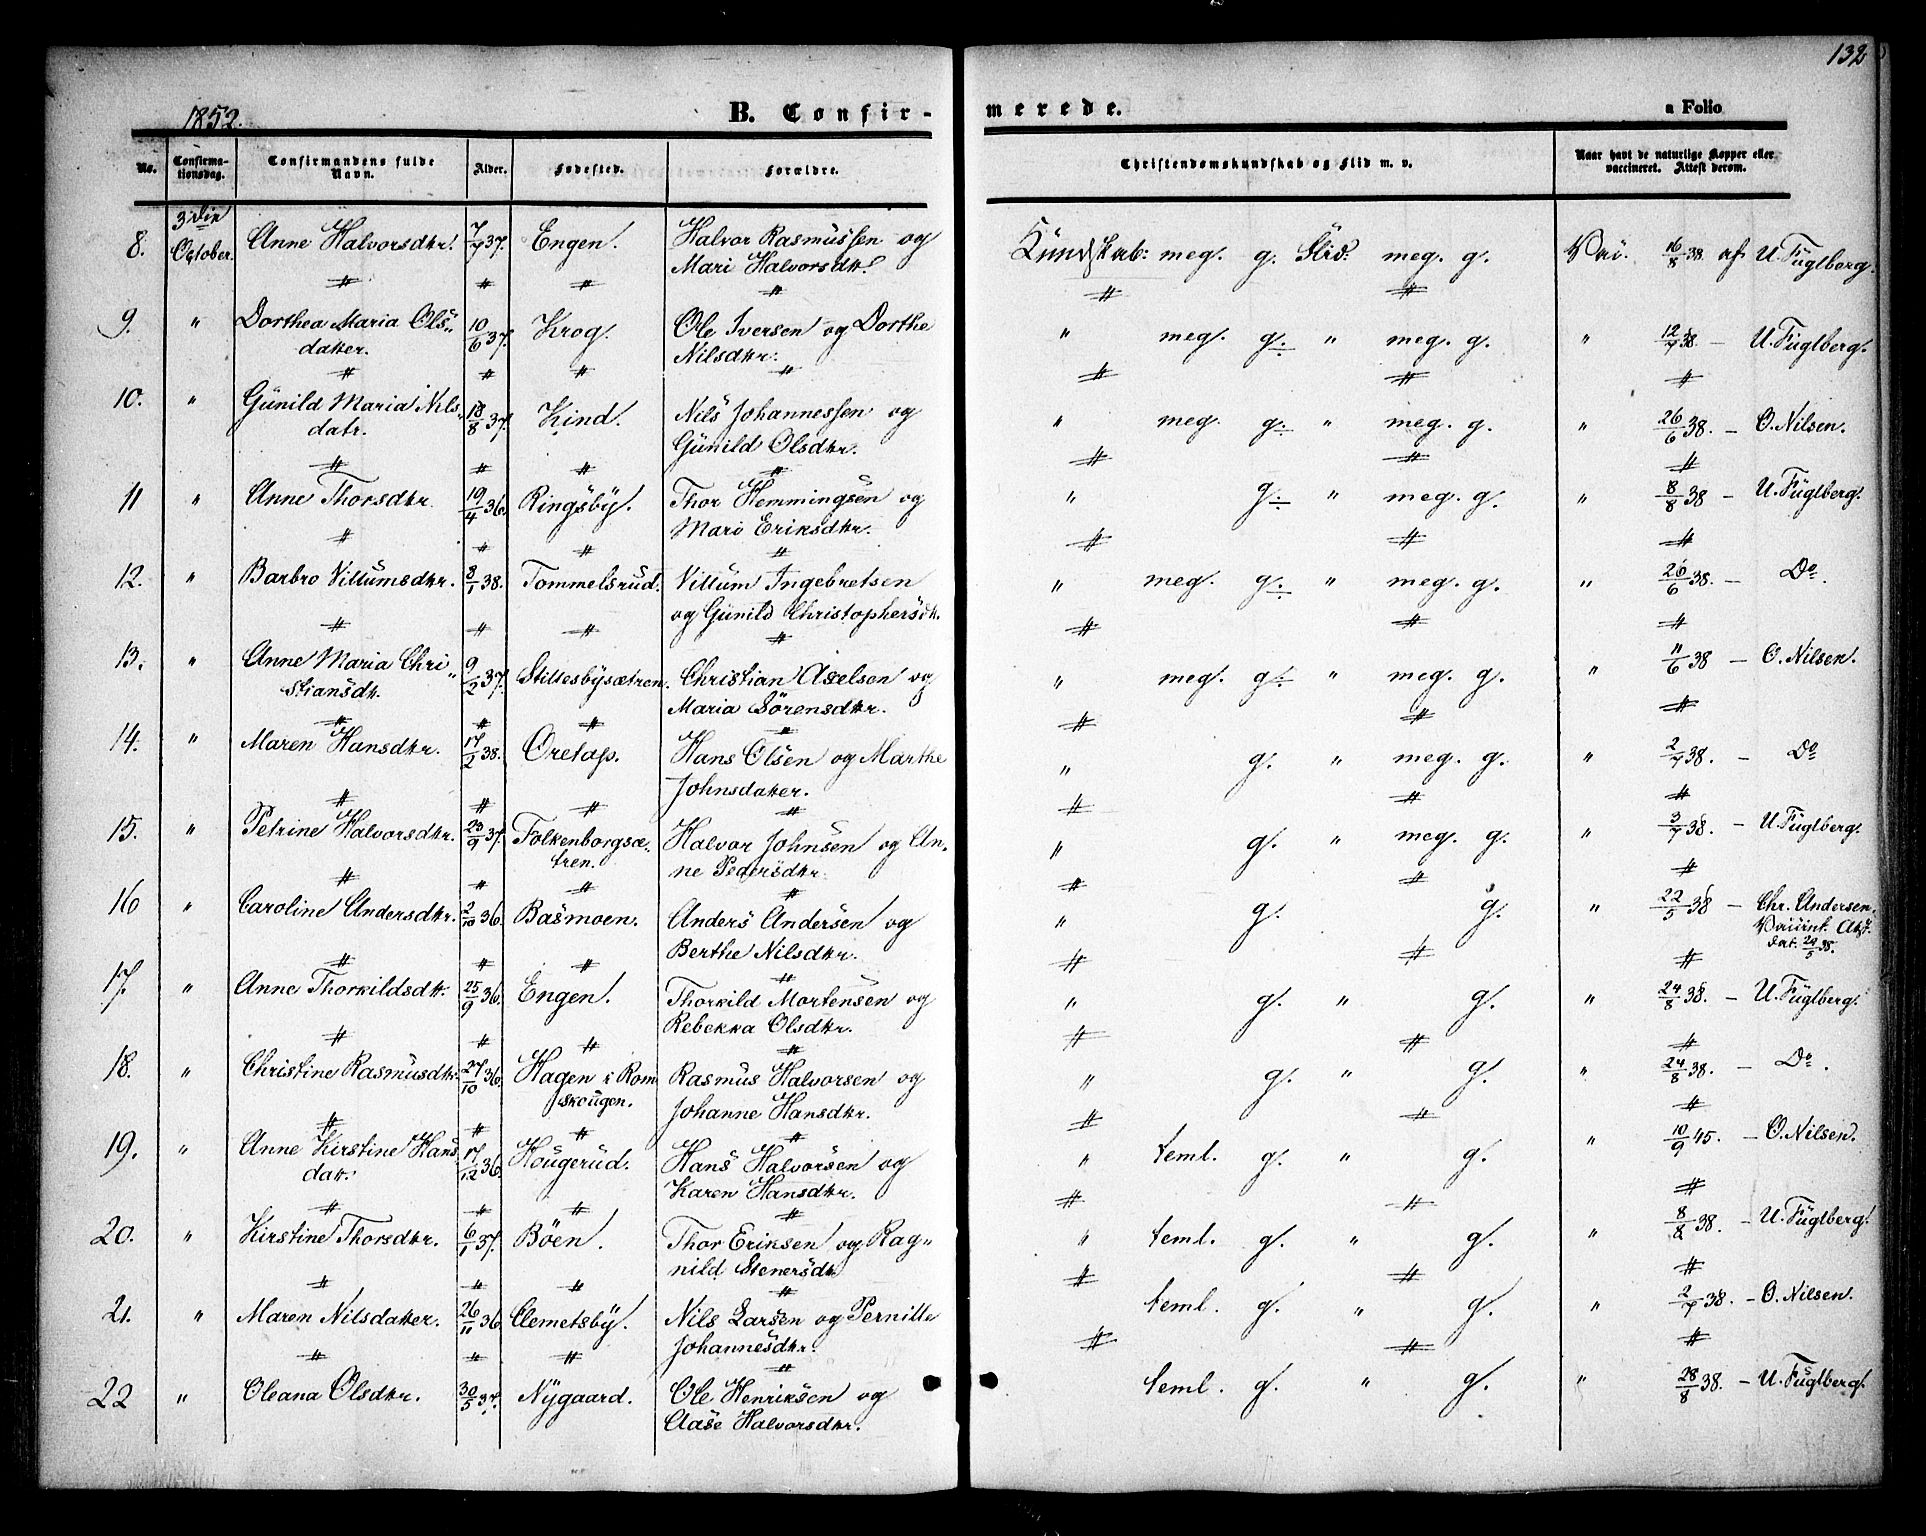 132
1852.
B. Confir-
merede.
a Folio
No.
Confirma-
tionsdag.
Confirmandens fulde
Navn.
Alder.
Fødested.
Forældre.
Christendomskundskab og Flid m. v.
Naar havt de naturlige Kopper eller
vaccineret. Attest derom.
3die
8. October. Anne Halvorsdtr. 7/7 37. Engen. Halvor Rasmussen og
Mari Halvorsdtr.
Kundskab: meg. g. Flid: meg. g. Vac. 16/8 38 af U. Fuglberg.
9. " Dorthea Maria Ols"
datter. 10/6 37. Krog. Ole Iversen og Dorthe
Nilsdtr.
" meg. g. " meg. g. " 12/7 38 – U. Fuglberg.
10. " Gunild Maria Nils"
datr. 18/8 37. Kind. Nils Johannessen og
Gunild Olsdtr.
" meg. g. " meg. g. " 26/6 38. – O. Nilsen.
11 " Anne Thorsdtr 19/4 36. Ringsby. Thor Hemmingsen og
Mari Eriksdtr.
" g. " meg. g. " 8/8 38 – U. Fuglberg.
12. " Barbro Vittumsdtr. 8/1 38. Tommelsrud. Vittum Ingebretsen
og Gunild Christophersdtr.
" meg. g. " meg. g. " 26/6 38. – Do.
13. " Anne Maria Chri"
stiansdtr. 9/2 37. Stiltesbysætren. Christian Axelsen og
Maria Sörensdtr.
" meg. g. " meg. g. " 11/6 38 – O. Nilsen.
14. " Maren Hansdtr. 17/2 38. Oretap. Hans Olsen og Marthe
Johnsdatter.
" g. " meg. g. " 2/7 38. – Do
15. " Petrine Halvorsdtr. 23/9 37. Folkenborgsæ-
tren. Halvor Johnsen og An-
ne Pedersdtr.
" g. " meg. g. " 3/7 38. – U. Fuglberg.
16 " Caroline Andersdtr. 2/10 36. Basmoen. Anders Andersen og
Berthe Nilsdtr.
" g. g. " 22/5 38 – Chr. Andersen.
17. " Anne Thorkildsdtr. 25/9 36. Engen. Thorkild Mortensen og
Rebekka Olsdtr.
" g. " g. " 24/8 38. – U. Fuglberg.
18. " Christine Rasmusdtr. 27/10 36. Hagen i Rom
skougen. Rasmus Halvorsen og
Johanne Hansdtr.
" g. " g. " 24/8 38. – Do.
19. " Anne Kirstine Hans"
datr. 17/12 36. Hougerud. Hans Halvorsen og
Karen Hansdtr.
" teml. g. " g. " 10/9 45. – O. Nilsen.
20. " Kirstine Thorsdtr. 6/1 37. Böen. Thor Eriksen og Rag"
nild Stenersdtr
" teml. g. " g. " 8/8 38. – U. Fuglberg.
21. " Maren Nilsdatter. 26/11 36. Clemetsby. Nils Larsen og Pernille
Johannesdtr.
teml. g. " g. " 2/7 38. – O. Nilsen.
22 " Oleana Olsdtr. 30/5 37. Nygaard. Ole Henriksen og
Aase Halvorsdtr.
teml. g. " g. " 28/8 38. – U. Fuglberg.